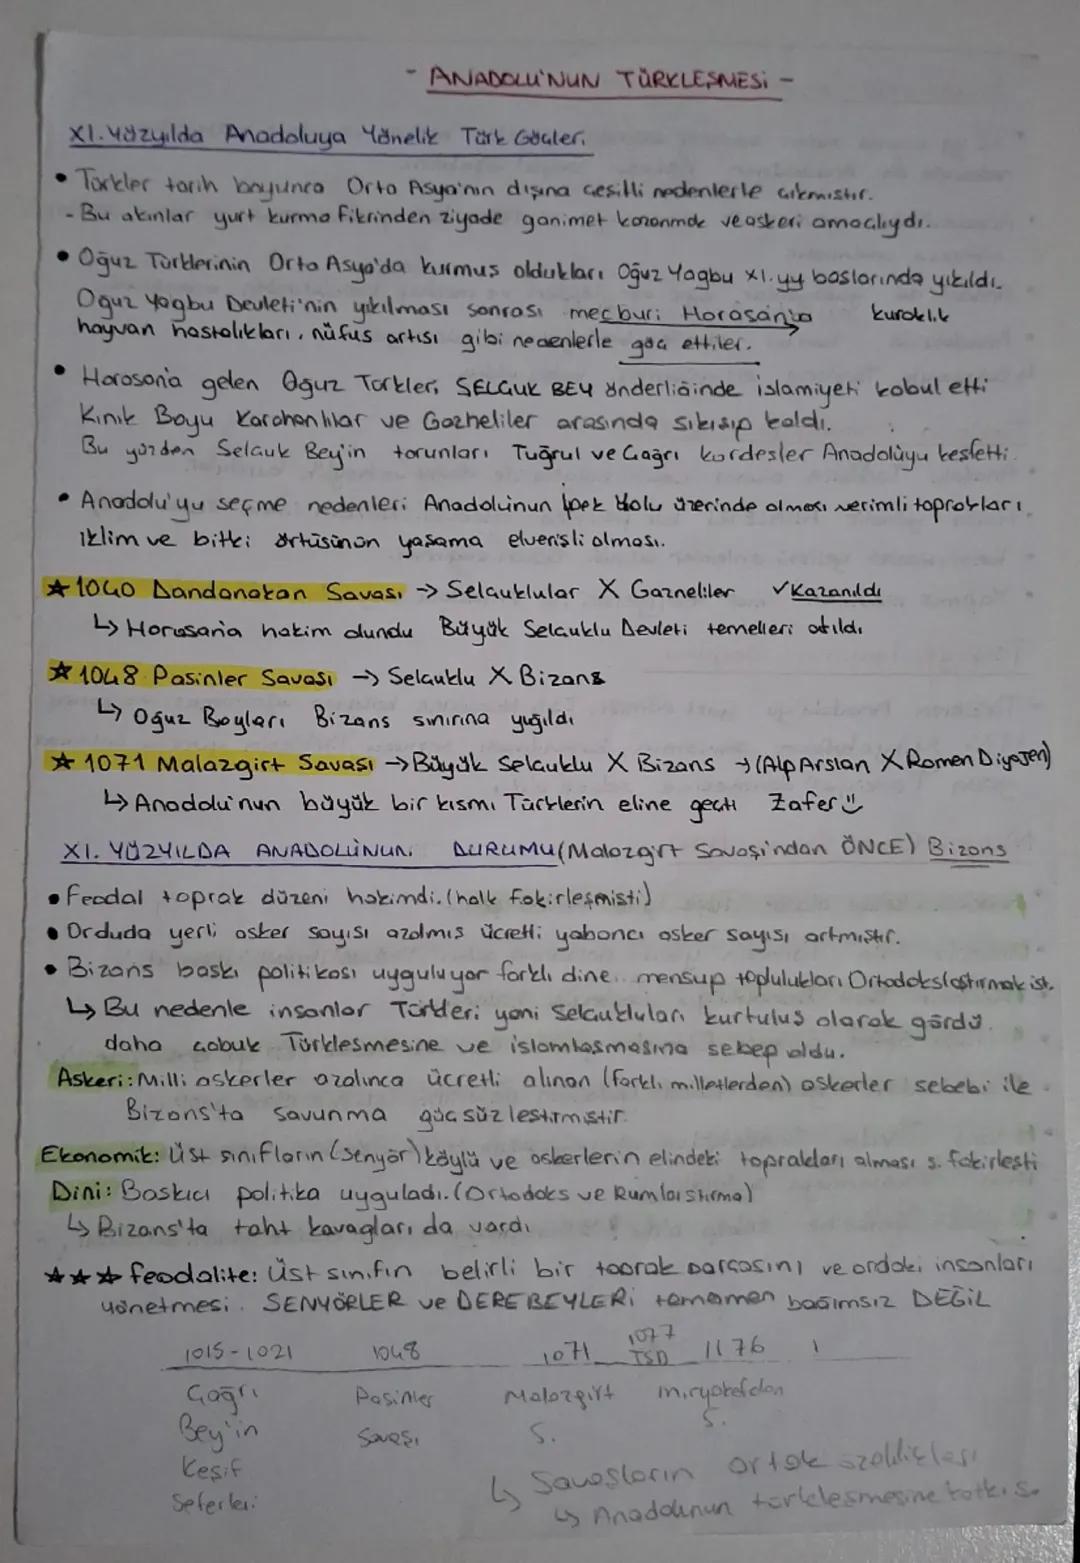 - ANADOLU'NUN TÜRKLEŞMESİ -
XI. Yüzyılda Anadoluya Yönelik Türk Göçleri
• Türkler tarih boyunca Orta Asya'nın dışına çeşitli nedenlerle çıkmıştır.
- Bu akınlar yurt kurma fikrinden ziyade ganimet kazanmak ve askeri amaçlıydı.
• Oğuz Türklerinin Orta Asya'da kurmuş oldukları Oğuz Yagbu XI. yy başlarında yıkıldı.
Oğuz Yagbu Devleti'nin yıkılması sonrası mecburi Horasan'a kuraklık
hayvan hastalıkları, nüfus artışı gibi nedenlerle göç ettiler.
• Horasan'a gelen Oğuz Türkleri SELÇUK BEY önderliğinde islamiyeti kabul etti
Kınık Boyu Karahanlılar ve Gazneliler arasında sıkışıp kaldı.
Bu yüzden Selçuk Bey'in torunları Tuğrul ve Çağrı kardeşler Anadolu'yu keşfetti.
• Anadolu'yu seçme nedenleri Anadolu'nun İpek Yolu üzerinde olması verimli toprakları
iklim ve bitki örtüsünün yaşama elverişli olması.
★ 1040 Dandanakan Savaşı → Selçuklular X Gazneliler ✓ Kazanıldı
↳ Horasan'a hakim olundu Büyük Selçuklu Devleti temelleri atıldı
★ 1048 Pasinler Savaşı → Selçuklu X Bizans
↳ Oğuz Boyları Bizans sınırına yığıldı
★ 1071 Malazgirt Savaşı → Büyük Selçuklu X Bizans → (Alp Arslan X Romen Diyojen)
↳ Anadolu'nun büyük bir kısmı Türklerin eline geçti Zafer ü
XI. YÜZYILDA ANADOLU'NUN DURUMU (Malazgirt Savaşı'ndan ÖNCE) Bizans
• Feodal toprak düzeni hakimdi. (halk fakirleşmişti)
• Orduda yerli asker sayısı azalmış ücretli yabancı asker sayısı artmıştır.
• Bizans baskı politikası uyguluyor farklı dine mensup toplulukları Ortodokslaştırmak ist.
↳ Bu nedenle insanlar Türkleri yani Selçukluları kurtuluş olarak gördü
daha çabuk Türkleşmesine ve islamlaşmasına sebep oldu.
Askeri: Milli askerler azalınca ücretli alınan (farklı milletlerden) askerler sebebi ile
Bizans'ta savunma güçsüzleştirmiştir.
Ekonomik: Üst sınıfların (senyör) köylü ve askerlerin elindeki toprakları alması s. fakirleşti
Dini: Baskıcı politika uyguladı. (Ortodoks ve Rumlaştırma)
↳ Bizans'ta taht kavagları da vardı
★★★ feodalite: Üst sınıfın belirli bir toprak parçasını ve ordaki insanları
yönetmesi. SENYÖRLER ve DEREBEYLERİ tamamen bağımsız DEĞİL
1015-1021 1048 1071 1077 TSD 1176 1
Çağrı Bey'in Keşif Seferleri
Pasinler Savaşı
Malazgirt S.
Miryokefalon S.
↳ Savaşların ortak özellikleri
↳ Anadolunun türkleşmesine katkı s.